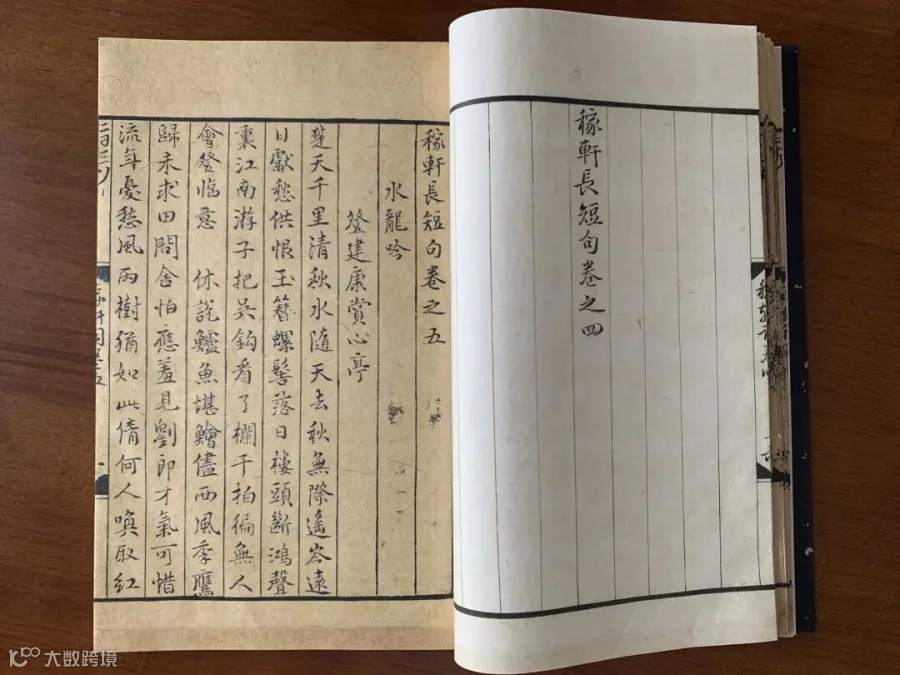 稼軒長短句卷之四
稼軒長短句卷之五
水龍吟
登建康賞心亭
楚天千里清秋水隨天去秋無際遙岑遠
目獻愁供恨玉簪螺髻落日樓頭斷鴻聲
裏江南游子把吳鈎看了欄干拍徧無人
會登臨意 休說鱸魚堪鱠儘西風季鷹
歸未求田問舍怕應羞見劉郎才氣可惜
流年憂愁風雨樹猶如此倩何人喚取紅
大数跨境